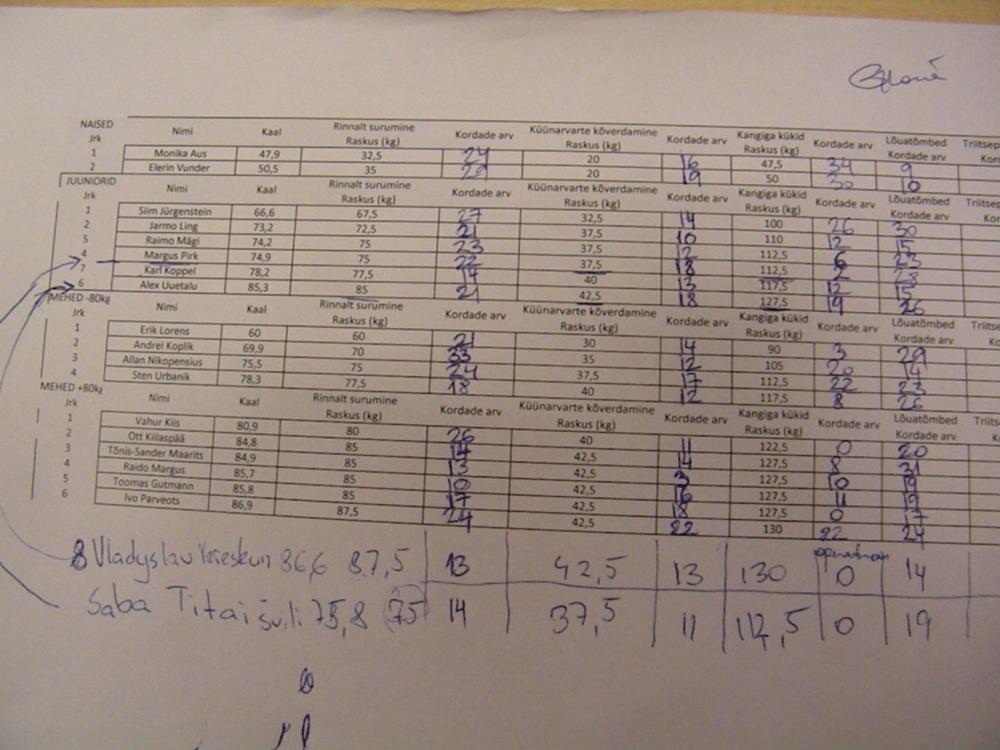 NAISED
Jrk Nimi Kaal Rinnalt surumine Raskus (kg) Kordade arv Küünarvarte kõverdamine Raskus (kg) Kordade arv Kangiga kükid Raskus (kg) Kordade arv Lõuatõmbed Kordade arv Triitsep
1 Monika Aus 47,9 32,5 24 20 16 47,5 34 9
2 Elerin Vunder 50,5 35 20 19 50 30 10
JUUNIORID
Jrk Nimi Kaal Rinnalt surumine Raskus (kg) Kordade arv Küünarvarte kõverdamine Raskus (kg) Kordade arv Kangiga kükid Raskus (kg) Kordade arv Lõuatõmbed Kordade arv Triitsep
1 Siim Jürgenstein 66,6 67,5 27 32,5 14 100 26 30
2 Jarmo Ling 73,2 72,5 21 37,5 10 110 12 15
5 Raimo Mägi 74,2 75 23 37,5 12 112,5 6 23
4 Margus Pirk 74,9 75 22 37,5 18 112,5 28
7 Karl Koppel 78,2 77,5 14 40 13 117,5 12 15
6 Alex Uuetalu 85,3 85 21 42,5 18 127,5 19 26
MEHED -80kg
Jrk Nimi Kaal Rinnalt surumine Raskus (kg) Kordade arv Küünarvarte kõverdamine Raskus (kg) Kordade arv Kangiga kükid Raskus (kg) Kordade arv Lõuatõmbed Kordade arv Triitse
1 Erik Lorens 60 60 21 30 14 90 3 29
2 Andrei Koplik 69,9 70 33 35 12 105 20 14
3 Allan Nikopensius 75,5 75 24 37,5 17 112,5 22 23
4 Sten Urbanik 78,3 77,5 18 40 12 117,5 8 26
MEHED +80kg
Jrk Nimi Kaal Rinnalt surumine Raskus (kg) Kordade arv Küünarvarte kõverdamine Raskus (kg) Kordade arv Kangiga kükid Raskus (kg) Kordade arv Lõuatõmbed Kordade arv Triits
1 Vahur Kiis 80,9 80 26 40 11 122,5 0 20
2 Ott Kiilaspää 84,8 85 42,5 14 127,5 8
3 Tõnis-Sander Maarits 84,9 85 13 42,5 127,5 10
4 Raido Margus 85,7 85 10 42,5 127,5 11
5 Toomas Gutmann 85,8 85 17 42,5 18 127,5 0 17
6 Ivo Parveots 86,9 87,5 24 42,5 22 130 22 24
8 Vladyslav 86,6 87,5 13 42,5 13 130 0 14
Saba Titaišvili 75,8 (75) 14 37,5 11 112,5 0 19